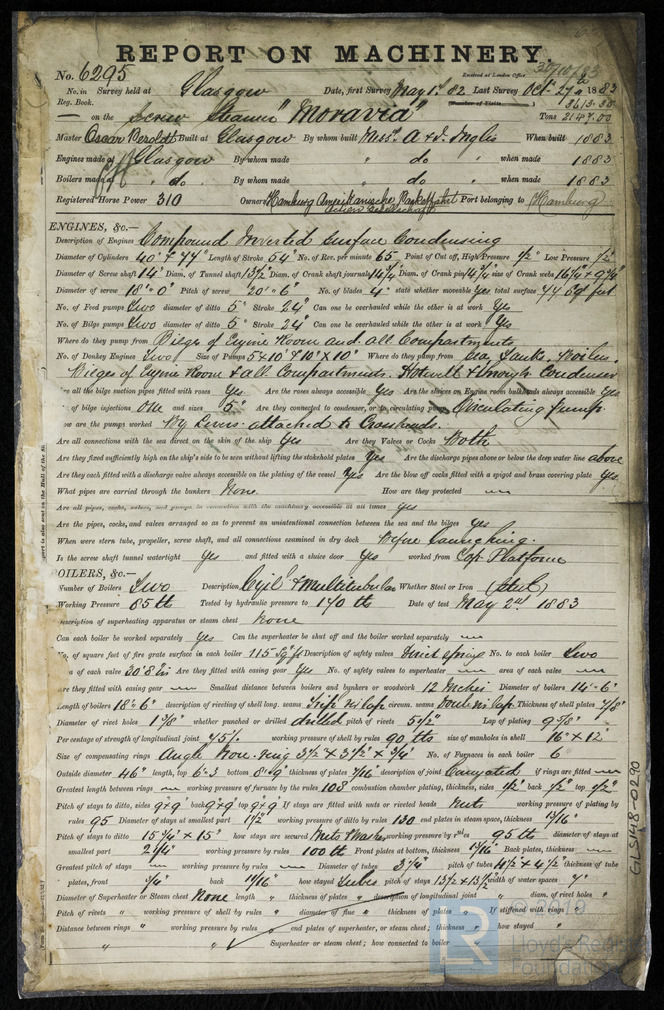 REPORT ON MACHINERY.
No. 6295 Received at London Office 30/10/83
No. in Survey held at Glasgow Date, first Survey May 1st 82 Last Survey Oct. 27th 1883
Reg. Book. (Number of Visits )
— on the Screw Steamer "Moravia" Tons 2147.00
Master Oscar Built at Glasgow By whom built Messrs A & J. Inglis When built 1883
Engines made at Glasgow By whom made " do " when made 1883
Boilers made at " do By whom made " do " when made 1883
Registered Horse Power 310 Owners Hamburg Amerikanische Packetfahrt Port belonging to Hamburg
Actien Gesellschaft
ENGINES, &c.—
Description of Engines Compound Inverted Surface Condensing
Diameter of Cylinders 40" & 74" Length of Stroke 54" No. of Rev. per minute 65 Point of Cut off, High Pressure 1/2" Low Pressure 1/2"
Diameter of Screw shaft 14" Diam. of Tunnel shaft 13 1/2 Diam. of Crank shaft journals 14 1/4 Diam. of Crank pin 14 3/4" size of Crank webs
Diameter of screw 18" 0" Pitch of screw 20' 6" No. of blades 4 state whether moveable yes total surface feet
No. of Feed pumps Two diameter of ditto 5" Stroke 24" Can one be overhauled while the other is at work Yes
No. of Bilge pumps Two diameter of ditto 5" Stroke 24" Can one be overhauled while the other is at work Yes
Where do they pump from Bilges of Engine Room and all Compartments
No. of Donkey Engines Two Size of Pumps Where do they pump from Sea, Tanks, Boilers,
Bilges of Engine Room & all Compartments. Hotwell & through Condenser
are all the bilge suction pipes fitted with roses Yes Are the roses always accessible Yes Are the sluices on Engine room bulkheads always accessible Yes
of bilge injections One and sizes 5" Are they connected to condenser, or to circulating pump Circulating pump
ow are the pumps worked By Levers attached to Crossheads.
Are all connections with the sea direct on the skin of the ship Yes Are they Valves or Cocks Both
Are they fixed sufficiently high on the ship's side to be seen without lifting the stokehold plates Yes Are the discharge pipes above or below the deep water line above
Are they each fitted with a discharge valve always accessible on the plating of the vessel Yes Are the blow off cocks fitted with a spigot and brass covering plate Yes
What pipes are carried through the bunkers None. How are they protected —
Are all pipes, cocks, valves, and pumps in connection with the machinery accessible at all times yes
Are the pipes, cocks, and valves arranged so as to prevent an unintentional connection between the sea and the bilges Yes
When were stern tube, propeller, screw shaft, and all connections examined in dry dock Before Launching.
Is the screw shaft tunnel watertight Yes and fitted with a sluice door Yes worked from Top Platform
BOILERS, &c.—
Number of Boilers Two Description Cyl. & Multitubular Whether Steel or Iron (steel)
Working Pressure 85 lb Tested by hydraulic pressure to 170 lb Date of test May 2nd 1883
Description of superheating apparatus or steam chest none
Can each boiler be worked separately Yes Can the superheater be shut off and the boiler worked separately —
No. of square feet of fire grate surface in each boiler 115 sq ft Description of safety valves direct spring No. to each boiler Two
a of each valve 30.8 in Are they fitted with easing gear Yes No. of safety valves to superheater — area of each valve —
are they fitted with easing gear — Smallest distance between boilers and bunkers or woodwork 12 Inches Diameter of boilers 14'-6"
Length of boilers 18'-6" description of riveting of shell long. seams Trip. riv lap circum. seams Double riv lap Thickness of shell plates 7/8"
Diameter of rivet holes 1 3/8" whether punched or drilled drilled pitch of rivets 5 1/2" Lap of plating 9 5/8"
Percentage of strength of longitudinal joint 75% working pressure of shell by rules 90 lbs size of manholes in shell 16" x 12"
Size of compensating rings Angle Iron ring 3 1/2" x 3 1/2" x 3/4" No. of Furnaces in each boiler 6
Outside diameter 46" length, top 6'-3 bottom 8'-9" thickness of plates description of joint Corrugated if rings are fitted —
Greatest length between rings — working pressure of furnace by the rules 108 combustion chamber plating, thickness, sides 1/2" back 1/2" top 1/2"
Pitch of stays to ditto, sides 9 x 9" back 9 x 9" top 9 x 9" If stays are fitted with nuts or riveted heads Nuts working pressure of plating by
rules 95 Diameter of stays at smallest part 1 1/2" working pressure of ditto by rules 130 end plates in steam space, thickness
Pitch of stays to ditto 15 3/4" x 15" how stays are secured Nuts & Washers working pressure by rules 95 lb diameter of stays at
smallest part 2 1/4" working pressure by rules 100 lb Front plates at bottom, thickness Back plates, thickness —
Greatest pitch of stays — working pressure by rules — Diameter of tubes 3 1/4" pitch of tubes 4 1/2 x 4 1/2" thickness of tube
plates, front 3/4" back 11/16" how stayed Tubes pitch of stays 13 1/2 x 13 1/2 width of water spaces
Diameter of Superheater or Steam chest None length " thickness of plates " description of longitudinal joint " diam. of rivet holes "
Pitch of rivets " working pressure of shell by rules " diameter of flue " thickness of plates " If stiffened with rings "
Distance between rings " working pressure by rules " end plates of superheater, or steam chest; thickness " how stayed "
" Superheater or steam chest; how connected to boiler "
GLS1418-0290
LR
© 2019
Lloyd's Register
Foundation